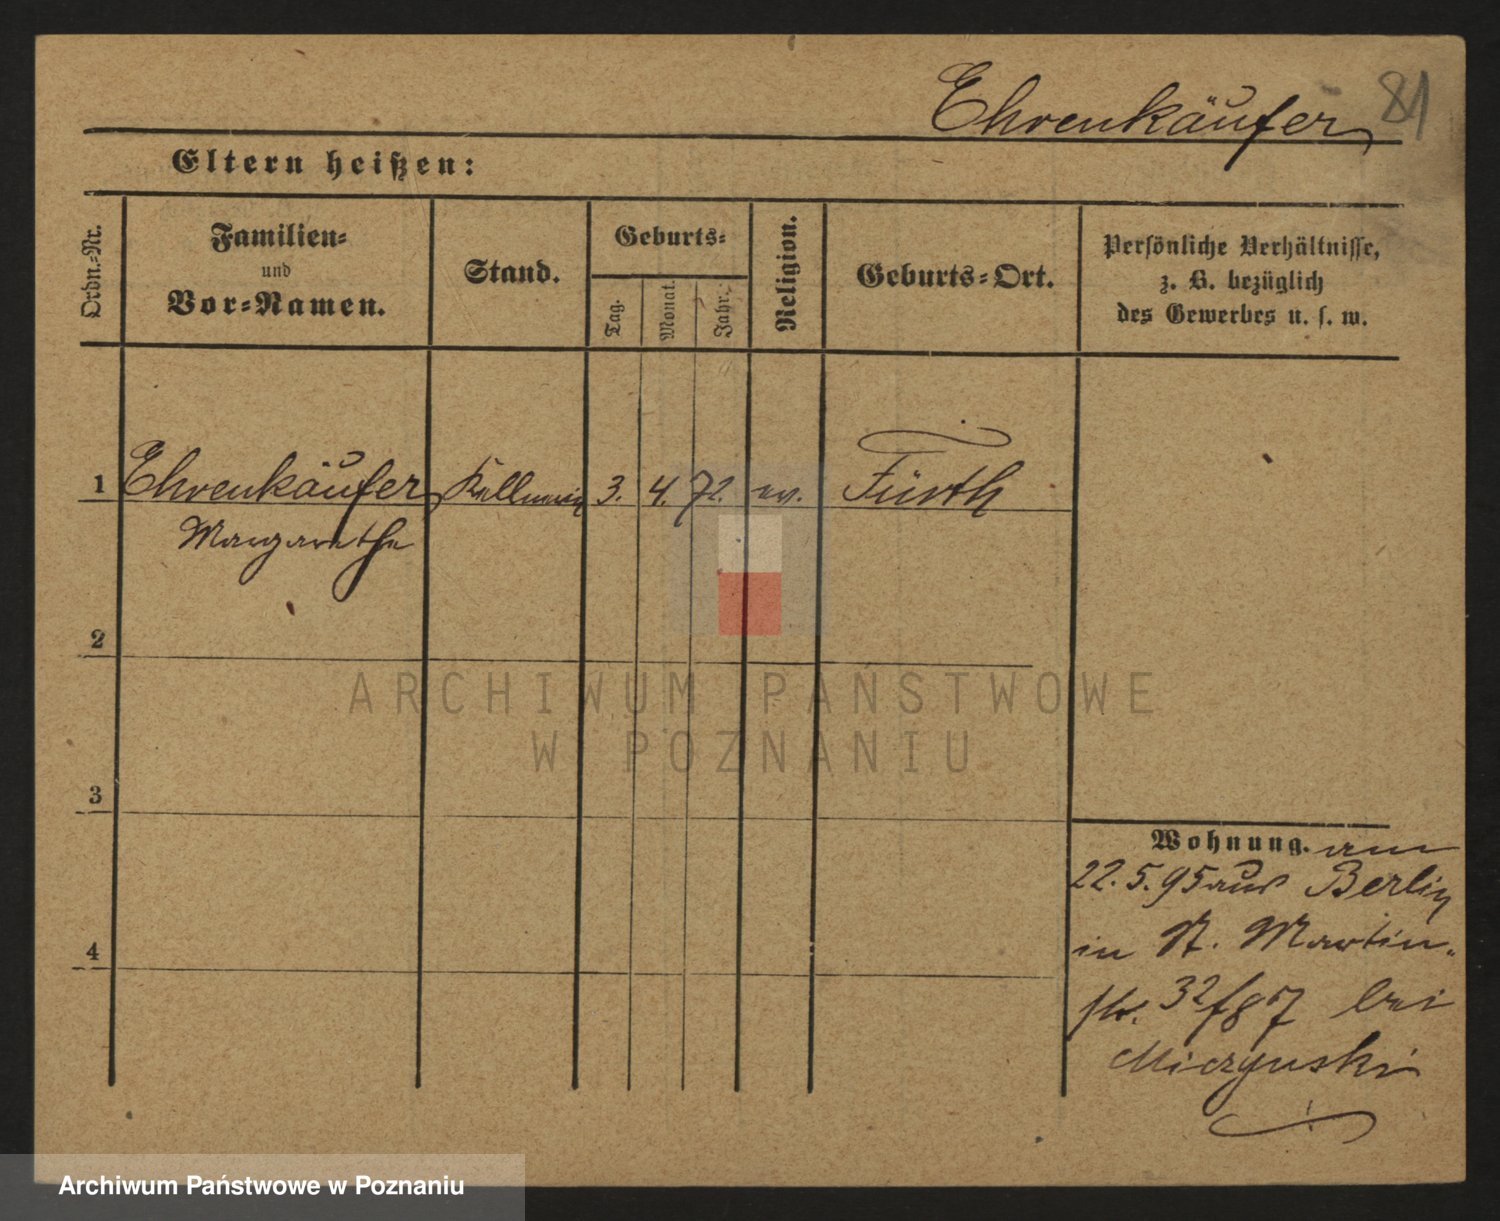 Ehrenkäufer 81
Eltern heißen:
Ordn.-Nr.
Familien-
und
Vor-Namen.
Stand.
Geburts-
Tag.
Monat.
Jahr.
Religion.
Geburts-Ort.
Persönliche Verhältnisse,
z. B. bezüglich
des Gewerbes u. s. w.
1 Ehrenkäufer Kellnerin 3. 4. 72. ev. Fürth
Margarethe
2
3
4
Wohnung. am
22. 5. 95 aus Berlin
in St. Martin-
str. 32 bei
Miczynski
ARCHIWUM PAŃSTWOWE
W POZNANIU
Archiwum Państwowe w Poznaniu